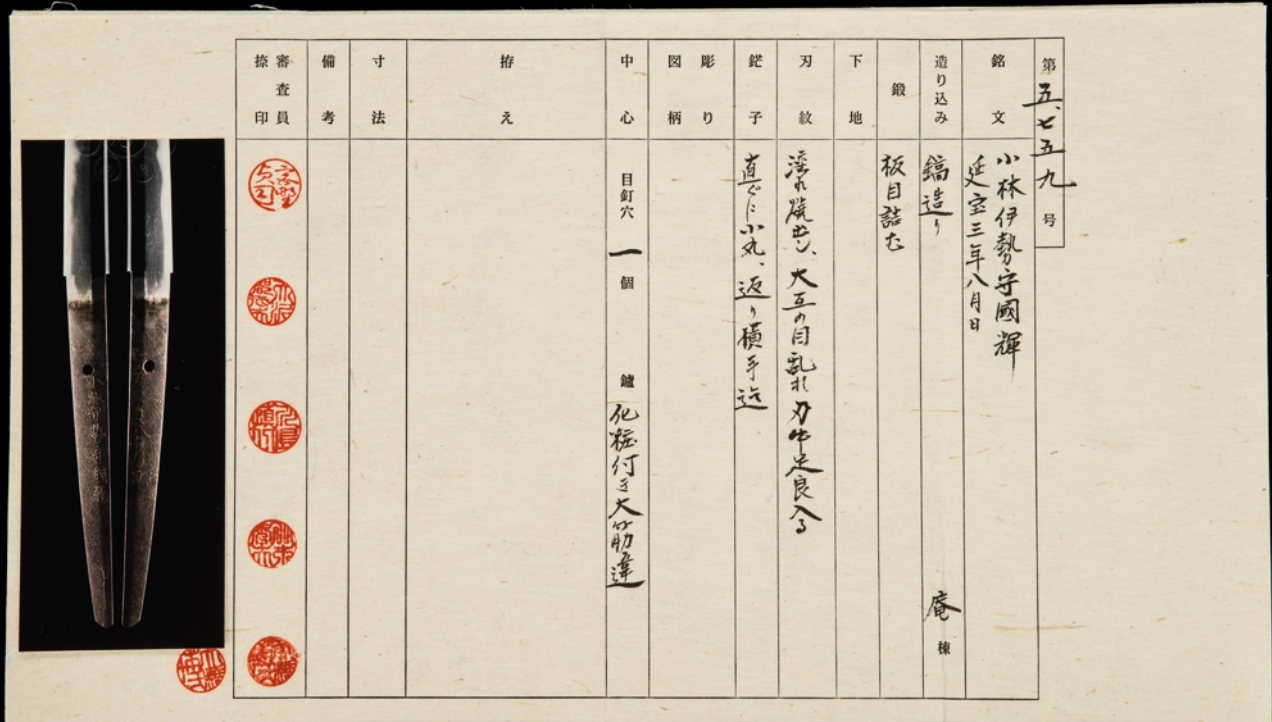 第五、七五九号
銘文
小林伊勢守國輝
延宝三年八月日
造り込み
鎬造り
庵棟
鍛
板目詰む
下地
刃紋
湾れ焼出し、大互の目乱れ刃中足良入る
鋩子
直ぐに小丸、返り横手迄
彫り
図柄
中心
目釘穴 一 個
鑢 化粧付き大筋違
拵え
寸法
備考
審査員
捺印